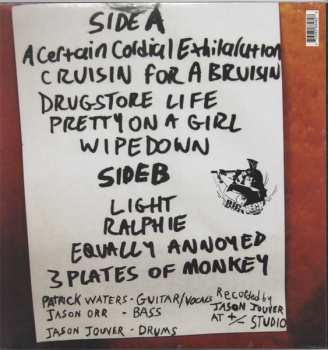 SIDE A
A Certain Cordial Exhilaration
CRUISIN FOR A BRUISIN
DRUGSTORE LIFE
PRETTY ON A GIRL
WIPEDOWN
SIDE B
LIGHT
RALPHIE
EQUALLY ANNOYED
3 PLATES OF MONKEY
PATRICK WATERS - GUITAR/VOCALS
JASON ORR - BASS
JASON JOUVER - DRUMS
Recorded by
JASON JOUVER
AT +/- STUDIO